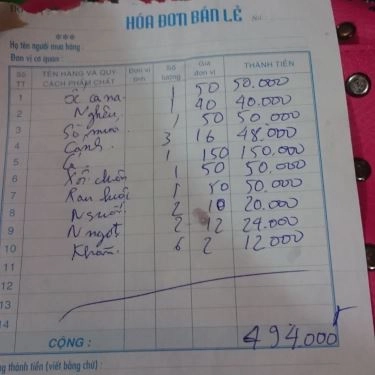 HÓA ĐƠN BÁN LẺ
***
Họ tên người mua hàng:
Đơn vị cơ quan:
Số TT TÊN HÀNG VÀ QUY CÁCH PHẨM CHẤT Đơn vị tính Số lượng Giá đơn vị THÀNH TIỀN
1 Ốc cà na 1 50 50.000
2 Nghêu 1 40 40.000
3 1 50 50.000
4 Canh 3 16 48.000
5 Cá 1 150 150.000
6 Xôi chiên 1 50 50.000
7 Rau luộc 1 50 50.000
8 N suối 2 10 20.000
9 N ngọt 2 12 24.000
10 Khăn 6 2 12.000
11
12
13
14
CỘNG: 494.000
ng thành tiền (viết bằng chữ):